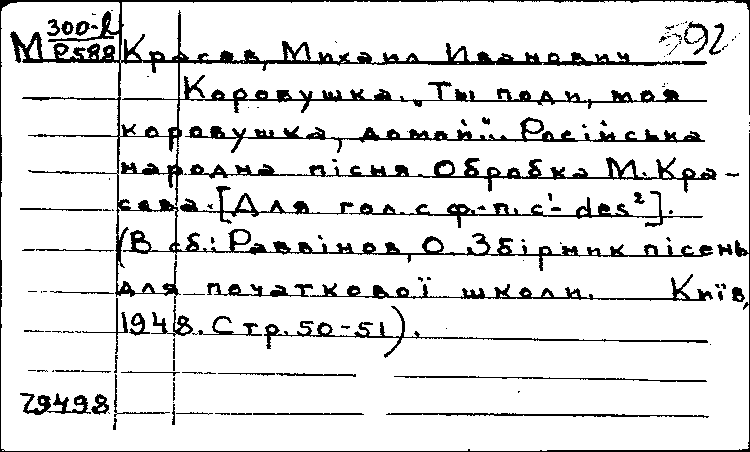 592
М 300-l
Р588 Красев, Михаил Иванович
Коровушка. „Ты поди, моя
коровушка, домой". Російська
народна пісня. Обробка М. Кра-
сева. [Для гол. с ф.-п. c¹- des²].
(В сб.: Раввінов, О. Збірник пісень
для початкової школи. Київ,
1948. Стр. 50-51).
79498